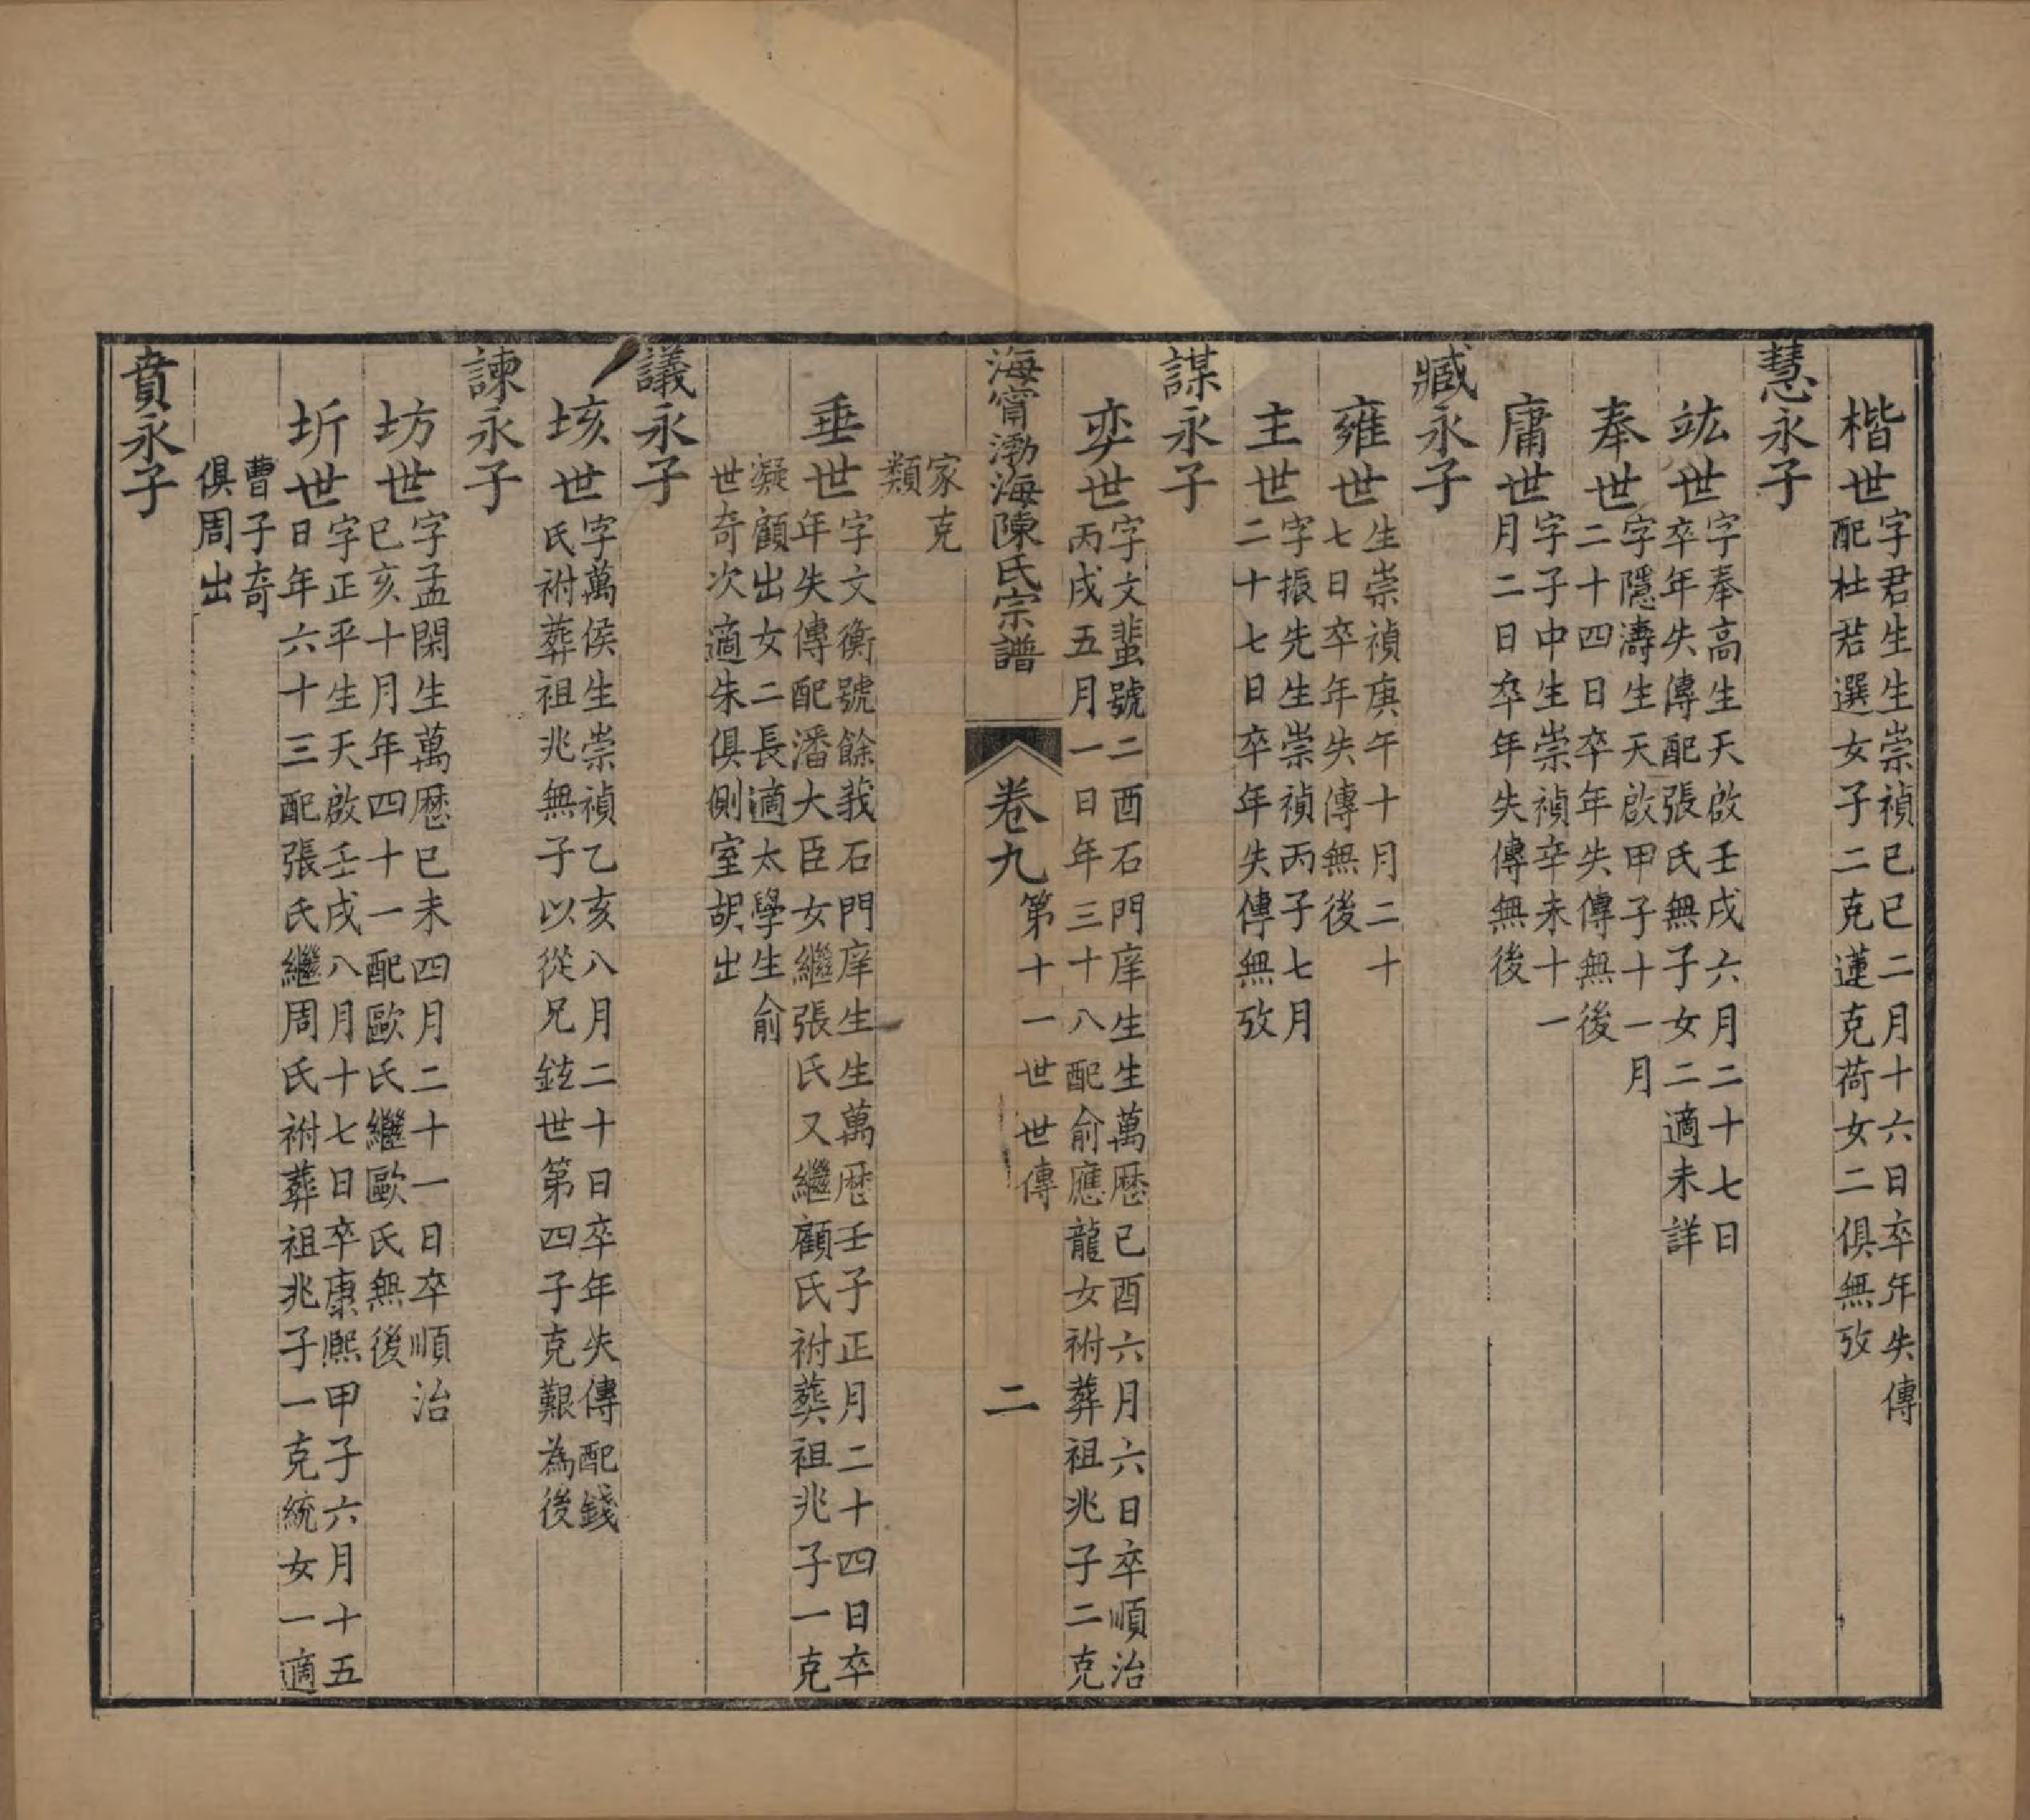 楷世
字君生生崇禎己巳二月十六日卒年失傳
配杜君選女子二克蓮克荷女二俱無攷
慧永子
竑世
字奉高生天啟壬戌六月二十七日
卒年失傳配張氏無子女二適未詳
奉世
字隱濤生天啟甲子十一月
二十四日卒年失傳無後
庸世
字子中生崇禎辛未十一
月二日卒年失傳無後
臧永子
雍世
生崇禎庚午十月二十
七日卒年失傳無後
主世
字振先生崇禎丙子七月
二十七日卒年失傳無攷
謀永子
奕世
字文蜚號二酉石門庠生生萬曆己酉六月六日卒順治
丙戌五月一日年三十八配俞應龍女祔葬祖兆子二克
海甯渤海陳氏宗譜
卷九
第十一世世傳
二
家克
類
垂世
字文衡號餘莪石門庠生生萬曆壬子正月二十四日卒
年失傳配潘大臣女繼張氏又繼顧氏祔葬祖兆子一克
凝顧出女二長適太學生俞
世奇次適朱俱側室胡出
議永子
垓世
字萬侯生崇禎乙亥八月二十日卒年失傳配錢
氏祔葬祖兆無子以從兄鉉世第四子克艱為後
諫永子
坊世
字孟閑生萬曆己未四月二十一日卒順治
己亥十月年四十一配歐氏繼歐氏無後
圻世
字正平生天啟壬戌八月十七日卒康熙甲子六月十五
日年六十三配張氏繼周氏祔葬祖兆子一克統女一適
曹子奇
俱周出
賁永子